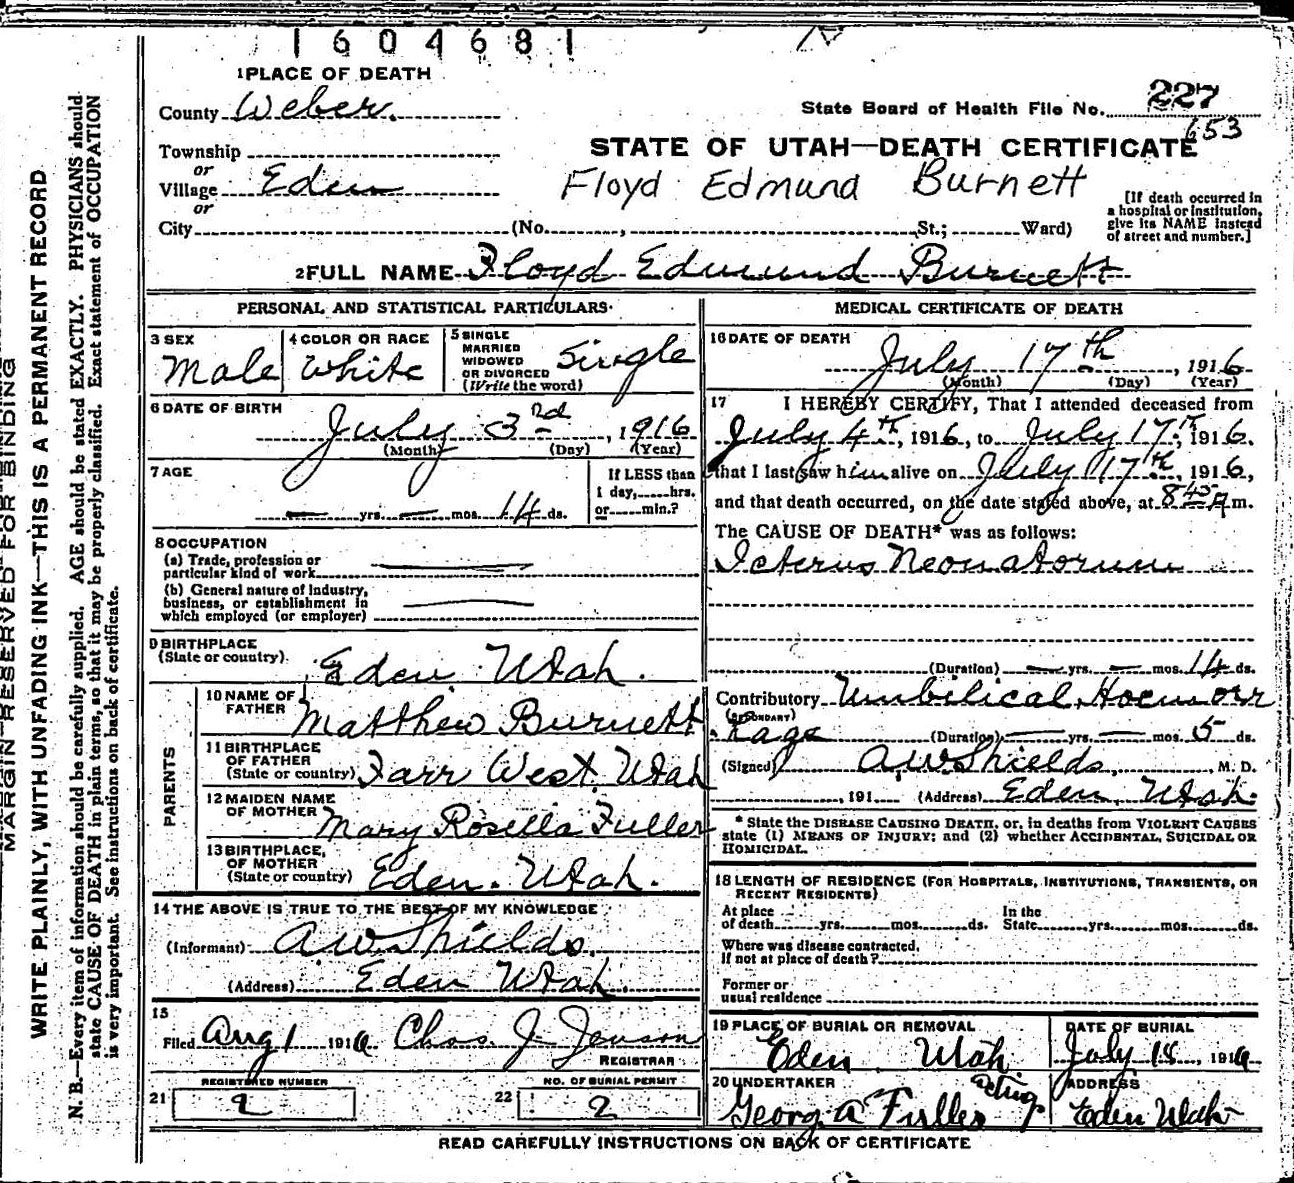 1604681
1 PLACE OF DEATH
County Weber.
State Board of Health File No. 227
653
Township
STATE OF UTAH—DEATH CERTIFICATE
or
Village Eden
Floyd Edmund Burnett
or
City (No. , St.; Ward)
[If death occurred in
a hospital or institution,
give its NAME instead
of street and number.]
2 FULL NAME Floyd Edmund Burnett
PERSONAL AND STATISTICAL PARTICULARS
3 SEX
Male
4 COLOR OR RACE
White
5 SINGLE
MARRIED
WIDOWED
OR DIVORCED
(Write the word)
Single
6 DATE OF BIRTH
July 3rd, 1916
(Month) (Day) (Year)
7 AGE
— yrs. — mos. 14 ds.
If LESS than
1 day, hrs.
or min.?
8 OCCUPATION
(a) Trade, profession or
particular kind of work
(b) General nature of industry,
business, or establishment in
which employed (or employer)
9 BIRTHPLACE
(State or country)
Eden Utah.
PARENTS
10 NAME OF
FATHER
Matthew Burnett
11 BIRTHPLACE
OF FATHER
(State or country) Farr West. Utah
12 MAIDEN NAME
OF MOTHER
Mary Rosella Fuller
13 BIRTHPLACE,
OF MOTHER
(State or country) Eden. Utah.
14 THE ABOVE IS TRUE TO THE BEST OF MY KNOWLEDGE
(Informant) A.W. Shields.
(Address) Eden Utah.
15
Filed Aug 1 1916 Chas. J. Jenson
REGISTRAR
REGISTERED NUMBER
21 2
NO. OF BURIAL PERMIT
22 2
MEDICAL CERTIFICATE OF DEATH
16 DATE OF DEATH
July 17th, 1916
(Month) (Day) (Year)
17 I HEREBY CERTIFY, That I attended deceased from
July 4th, 1916, to July 17th, 1916.
that I last saw him alive on July 17th, 1916,
and that death occurred, on the date stated above, at 8 45 A m.
The CAUSE OF DEATH* was as follows:
Icterus Neonatorum
(Duration) — yrs. — mos. 14 ds.
Contributory Umbilical Hoemorr
(SECONDARY)
hage (Duration) — yrs. — mos. 5 ds.
(Signed) A.W. Shields, M. D.
, 191 (Address) Eden, Utah.
* State the DISEASE CAUSING DEATH, or, in deaths from VIOLENT CAUSES
state (1) MEANS OF INJURY; and (2) whether ACCIDENTAL, SUICIDAL OR
HOMICIDAL.
18 LENGTH OF RESIDENCE (FOR HOSPITALS, INSTITUTIONS, TRANSIENTS, OR
RECENT RESIDENTS)
At place
of death yrs. mos. ds.
In the
State yrs. mos. ds.
Where was disease contracted,
If not at place of death?
Former or
usual residence
19 PLACE OF BURIAL OR REMOVAL
Eden Utah.
DATE OF BURIAL
July 18, 1916
20 UNDERTAKER
acting
Georg A Fuller
ADDRESS
Eden Utah
READ CAREFULLY INSTRUCTIONS ON BACK OF CERTIFICATE
MARGIN RESERVED FOR BINDING
WRITE PLAINLY, WITH UNFADING INK—THIS IS A PERMANENT RECORD
N. B.—Every item of information should be carefully supplied. AGE should be stated EXACTLY. PHYSICIANS should
state CAUSE OF DEATH in plain terms, so that it may be properly classified. Exact statement of OCCUPATION
is very important. See instructions on back of certificate.